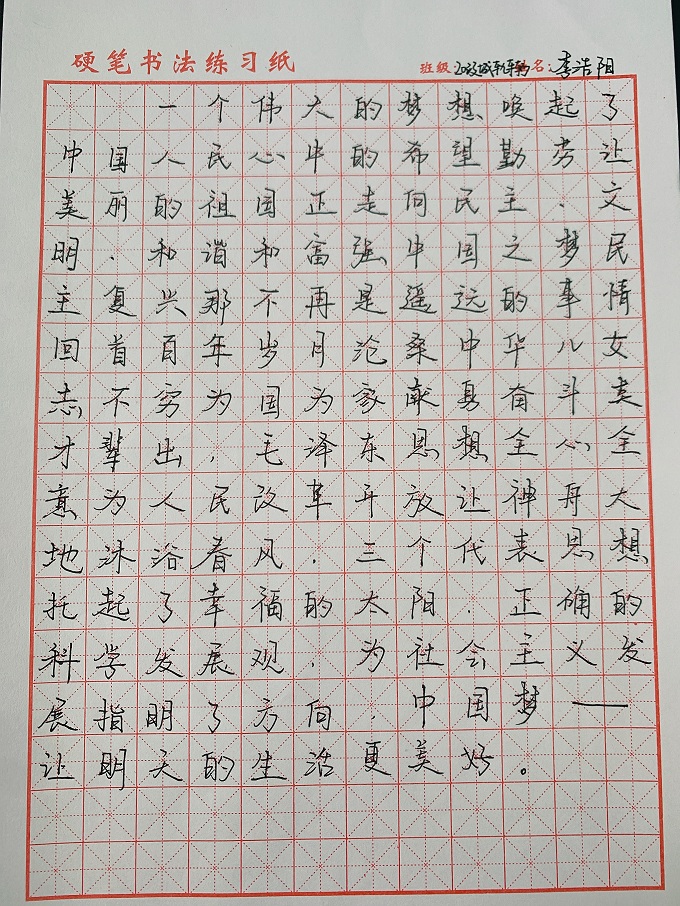 硬笔书法练习纸
班级 名：李浩阳
一个伟大的梦想唤起了
中国人民心中的希望勤劳让
美丽的祖国正走向民主、文
明、和谐和富强中国之梦民
主复兴那不再是遥远的事情
回首百年岁月沧桑中华儿女
志不穷为国为家献身奋斗英
才辈出，毛泽东思想全心全
意为人民改革开放让神舟大
地沐浴春风，三个代表思想
托起了幸福的太阳，正确的
科学发展观，为社会主义发
展指明了方向，中国梦——
让明天的生活更美好。